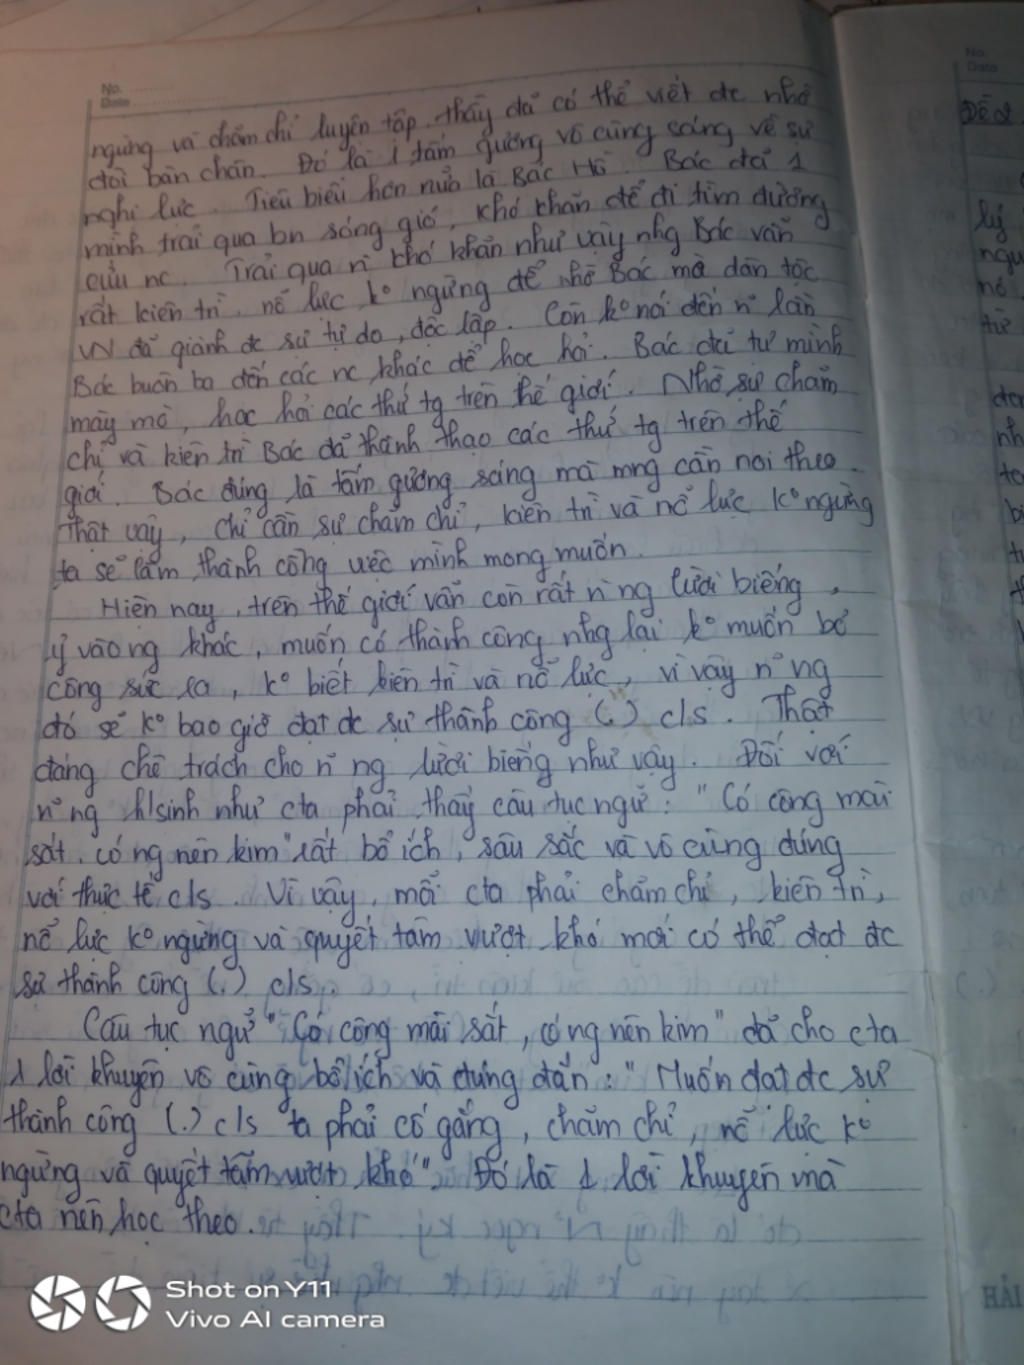 No.
Date
ngừng và chăm chỉ luyện tập. thầy đã có thể viết đc nhờ
đôi bàn chân. Đó là 1 tấm gương vô cùng sáng về sự
nghị lực. Tiêu biểu hơn nữa là Bác Hồ. Bác đã 1
mình trải qua bn sóng gió, khó khăn để đi tìm đường
cứu nc. Trải qua n~ khó khăn như vậy nhg Bác vẫn
rất kiên trì, nỗ lực kº ngừng để nhờ Bác mà dân tộc
VN đã giành đc sự tự do, độc lập. Còn kº nói đến n~ lần
Bác buôn ba đến các nc khác để học hỏi. Bác đã tự mình
mày mò, học hỏi các thứ tg trên thế giới. Nhờ sự chăm
chỉ và kiên trì Bác đã thành thạo các thứ tg trên thế
giới. Bác đúng là tấm gương sáng mà mng cần noi theo.
Thật vậy, chỉ cần sự chăm chỉ, kiên trì và nỗ lực kº ngừng
ta sẽ làm thành công việc mình mong muốn.
Hiện nay, trên thế giới vẫn còn rất n` ng lười biếng,
ỷ vào ng khác, muốn có thành công nhg lại kº muốn bỏ
công sức ra, kº biết kiên trì và nỗ lực, vì vậy n~ ng
đó sẽ kº bao giờ đạt đc sự thành công (.) c/s. Thật
đáng chê trách cho n~ ng lười biếng như vậy. Đối với
n~ ng h/sinh như cta phải thấy câu tục ngữ: "Có công mài
sắt, có ng nên kim" rất bổ ích, sâu sắc và vô cùng đúng
với thực tế c/s. Vì vậy, mỗi cta phải chăm chỉ, kiên trì,
nỗ lực kº ngừng và quyết tâm vượt khó mới có thể đạt đc
sự thành công (.) c/s.
Câu tục ngữ "Có công mài sắt, có ng nên kim" đã cho cta
1 lời khuyên vô cùng bổ ích và đúng đắn: "Muốn đạt đc sự
thành công (.) c/s ta phải cố gắng, chăm chỉ, nỗ lực kº
ngừng và quyết tâm vượt khó". Đó là 1 lời khuyên mà
cta nên học theo.
No.
Date
Đề 2
lý
nó
từ
HẢI
Shot on Y11
Vivo AI camera